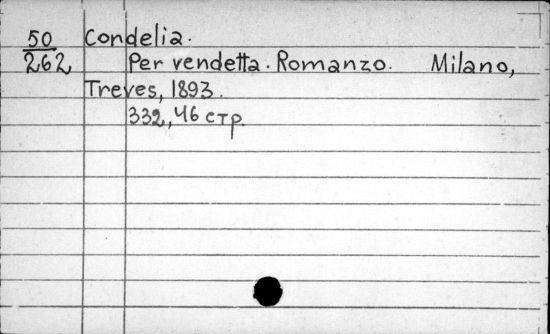 50 Condelia.
262 Per vendetta. Romanzo. Milano,
Treves, 1893.
332, 46 стр.